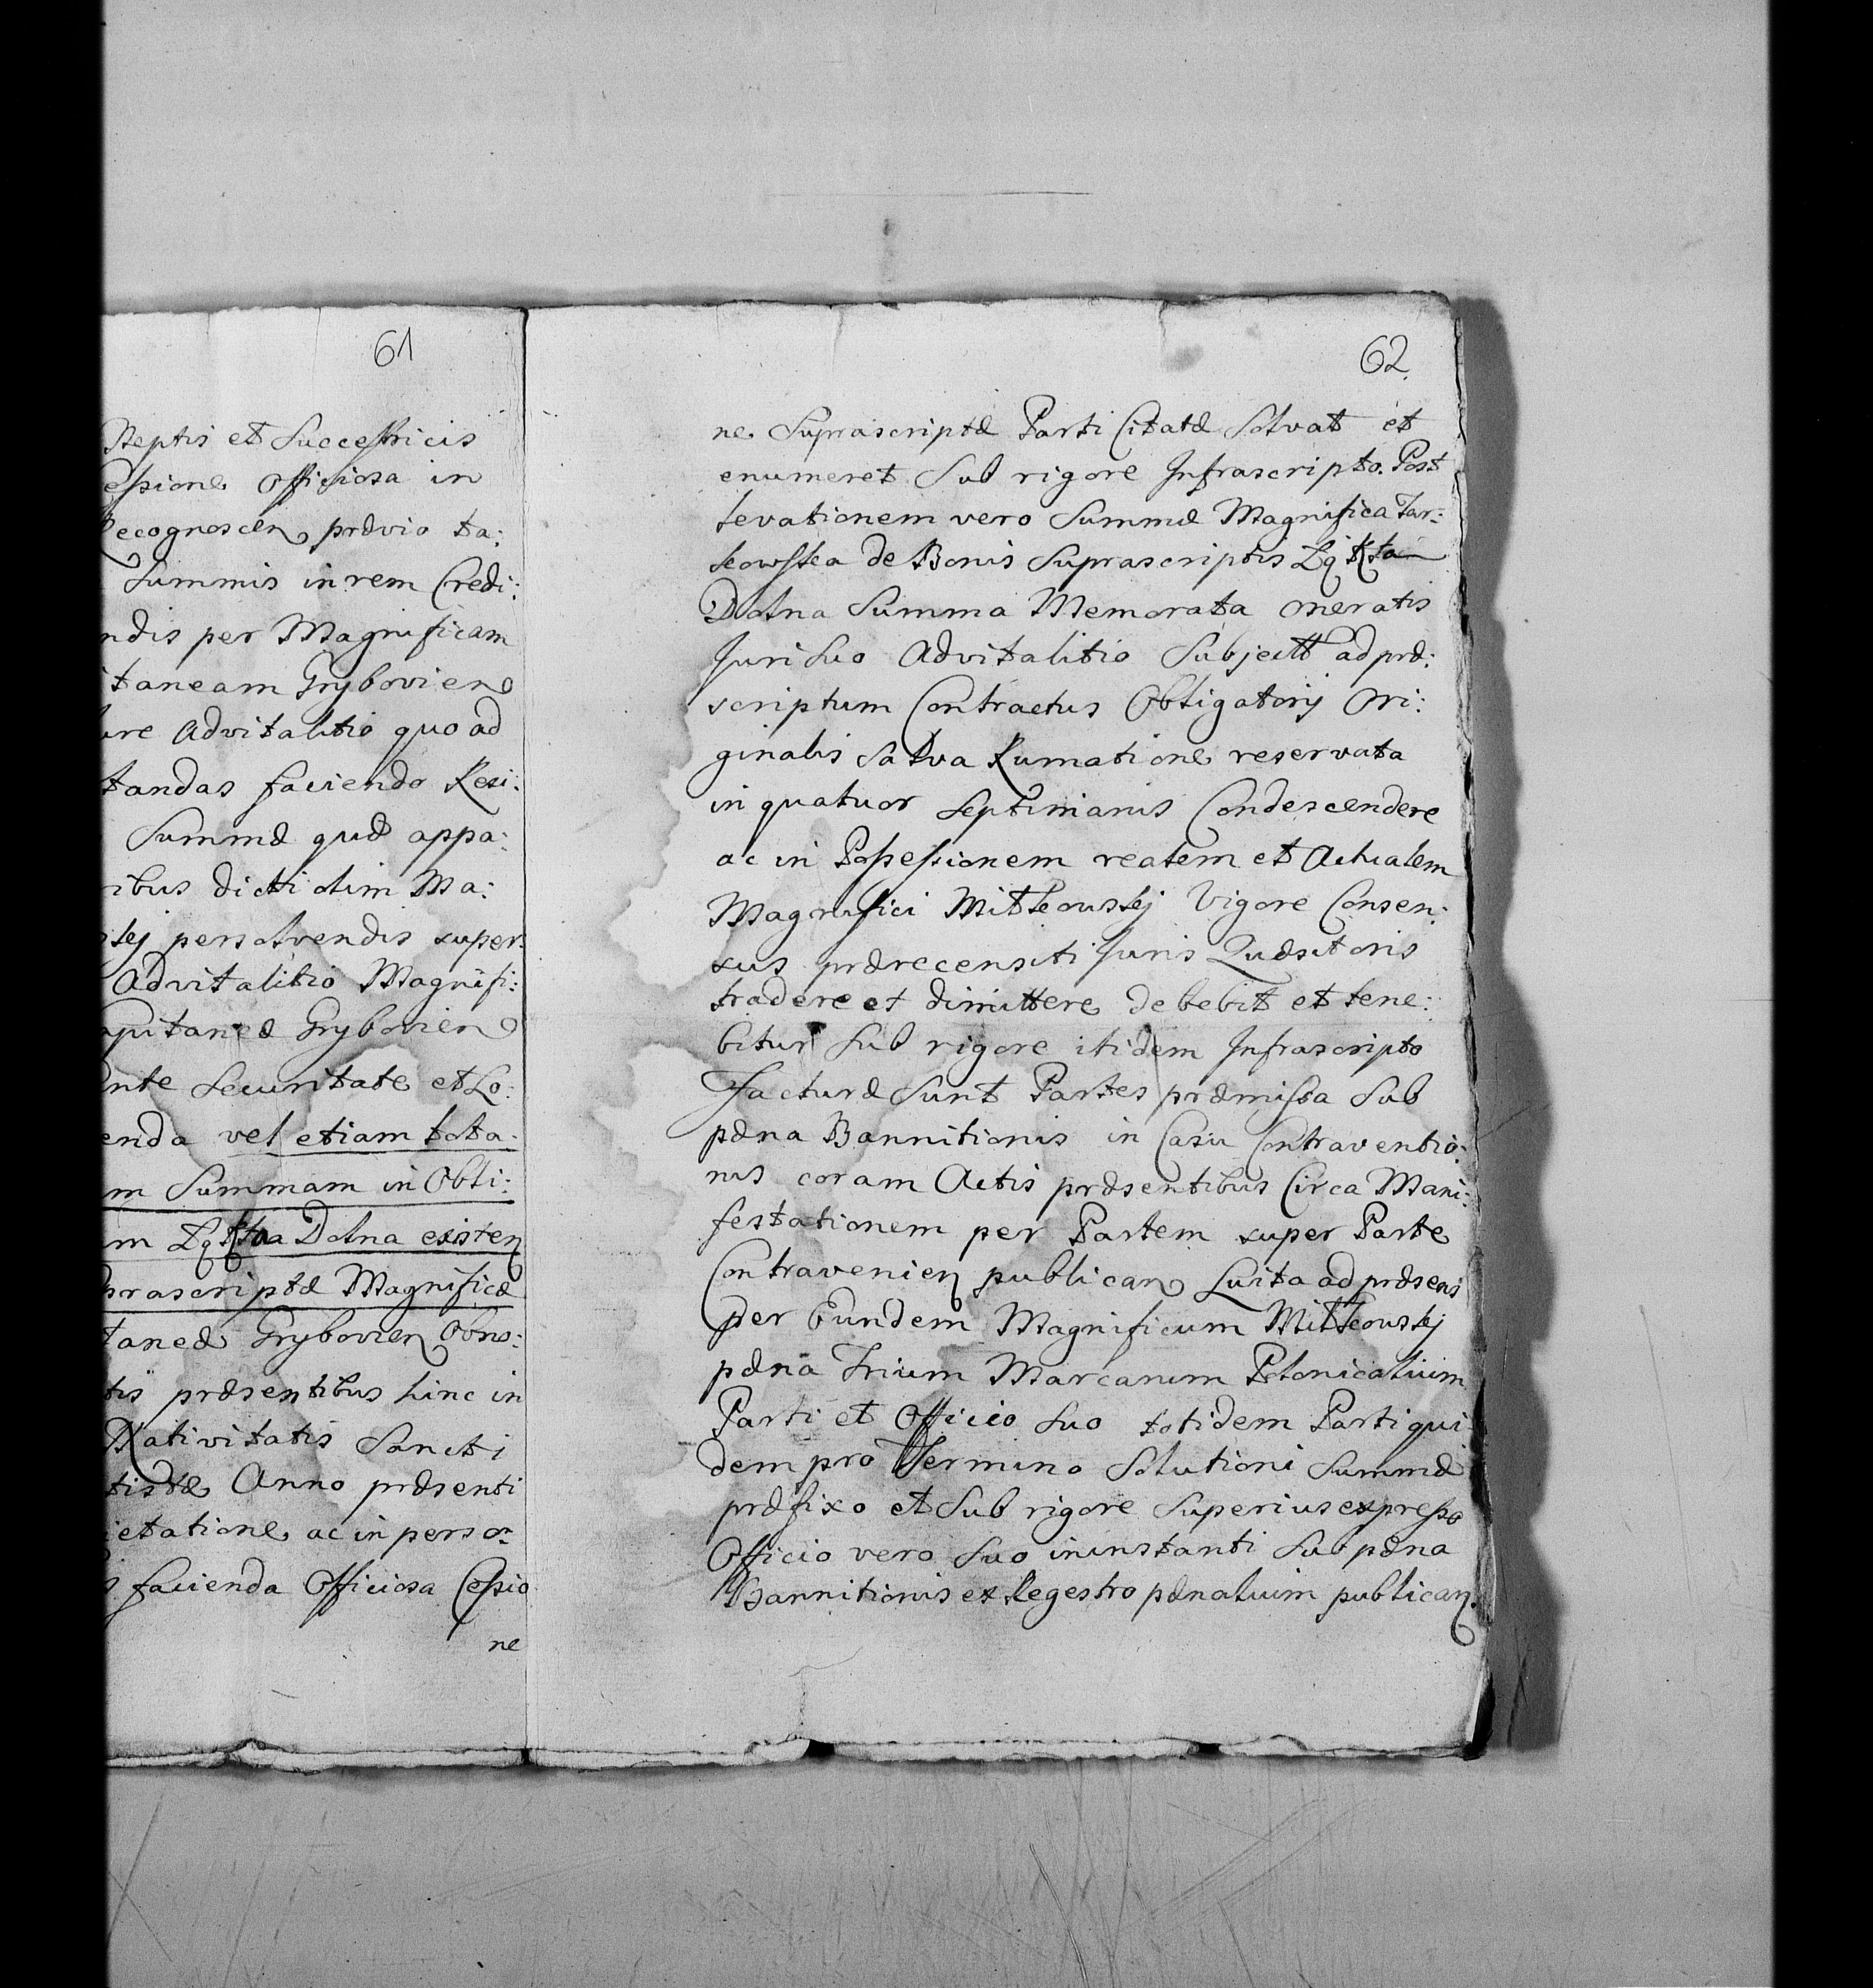 61
Neptis et Successricis
essione Officiosa in
Recognoscen prævio ta:
Summis in rem Credi:
ndis per Magnificam
itaneam Grybovien
ure Advitalitio quo ad
tandas faciendo Resi:
Summæ quæ appa:
ribus dicti olim Ma:
skj persolvendis super
Advitalitio Magnifi:
apitaneæ Grybovien
ante Securitate et Lo:
enda vel etiam tota:
m Summam in Obli:
m Łąkta Dolna existen
prascriptæ Magnificæ
taneæ Grybovien Obno:
tis præsentibus hinc in
Nativitatis Sancti
tistæ Anno præsenti
ietatione ac in perso:
s facienda Officiosa Cessio
ne
62.
ne Suprascriptæ Parti Citatæ Solvat et
enumeret Sub rigore Infrascripto. Post
levationem vero Summæ Magnifica Tar:
kowska de Bonis Suprascriptis Łąkta
Dolna Summa Memorata oneratis
Juri suo Advitalitio Subjectt ad præ:
scriptum Contractus Obligatorij Ori:
ginalis Salva Rumatione reservata
in quatuor Septimanis Condescendere
ac in Possessionem realem et Actualem
Magnifici Mitkowskj Vigore Consen:
sus prærecensiti Juris Quæsitoris
tradere et dimittere debebit et tene:
bitur Sub rigore itidem Infrascripto
Facturæ Sunt Partes præmissa Sub
pæna Bannitionis in Casu Contraventio:
nis coram Actis præsentibus Circa Mani:
festationem per Partem super Parte
Contravenien publican Luita ad præsens
per Eundem Magnificum Mitkowskj
pæna Trium Marcarum Polonicalium
Parti et Officio Suo totidem Parti qui
dem pro Termino Solutioni Summæ
præfixo et Sub rigore Superius expresso
Officio vero Suo in instanti Sub pæna
Bannitionis ex Regestro pænalium publican.